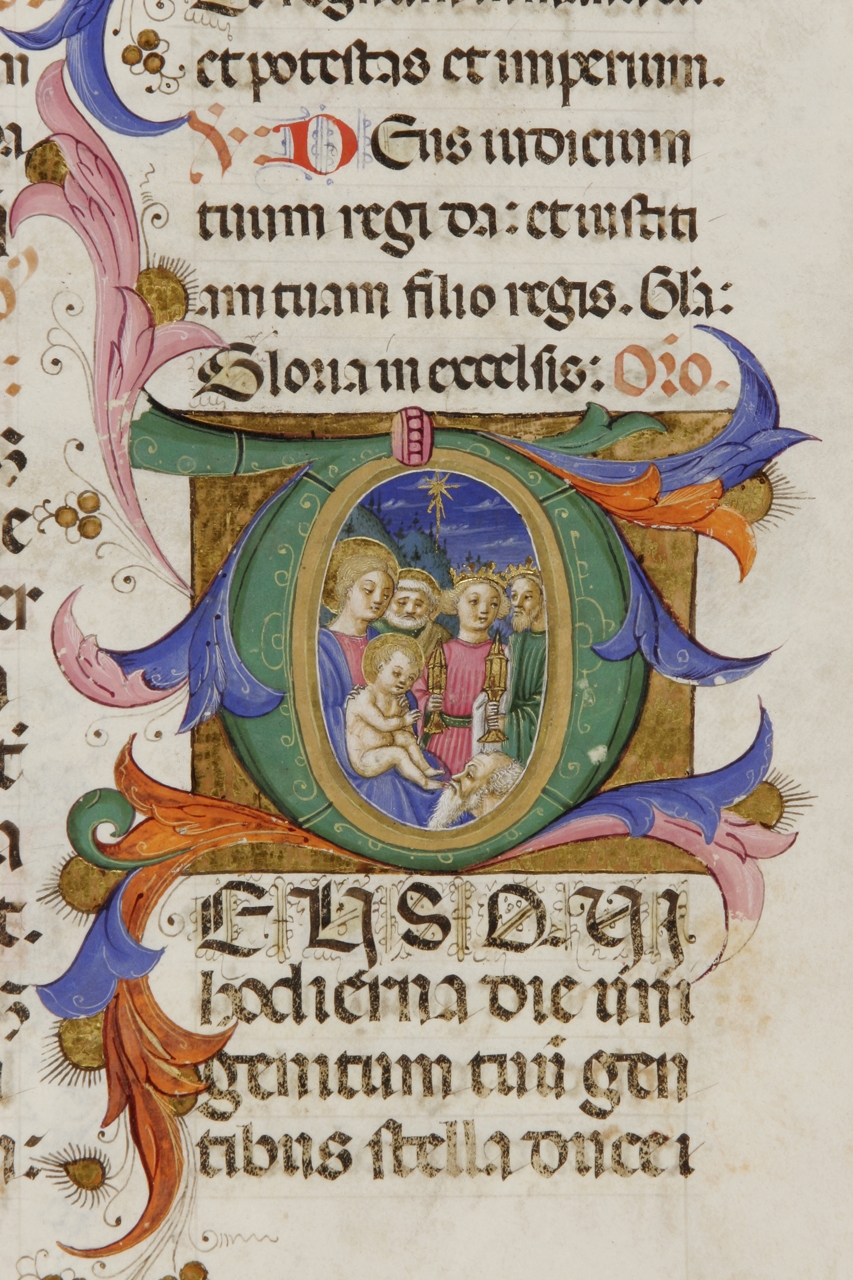 et potestas et imperium.
V. DEus iudicium
tuum regi da: et iusti ti
am tuam filio regis. Gła:
Gloria in excelsis: Oro.
DEUS. QUI
hodierna die uni
genitum tuū gen
tibus stella duce r